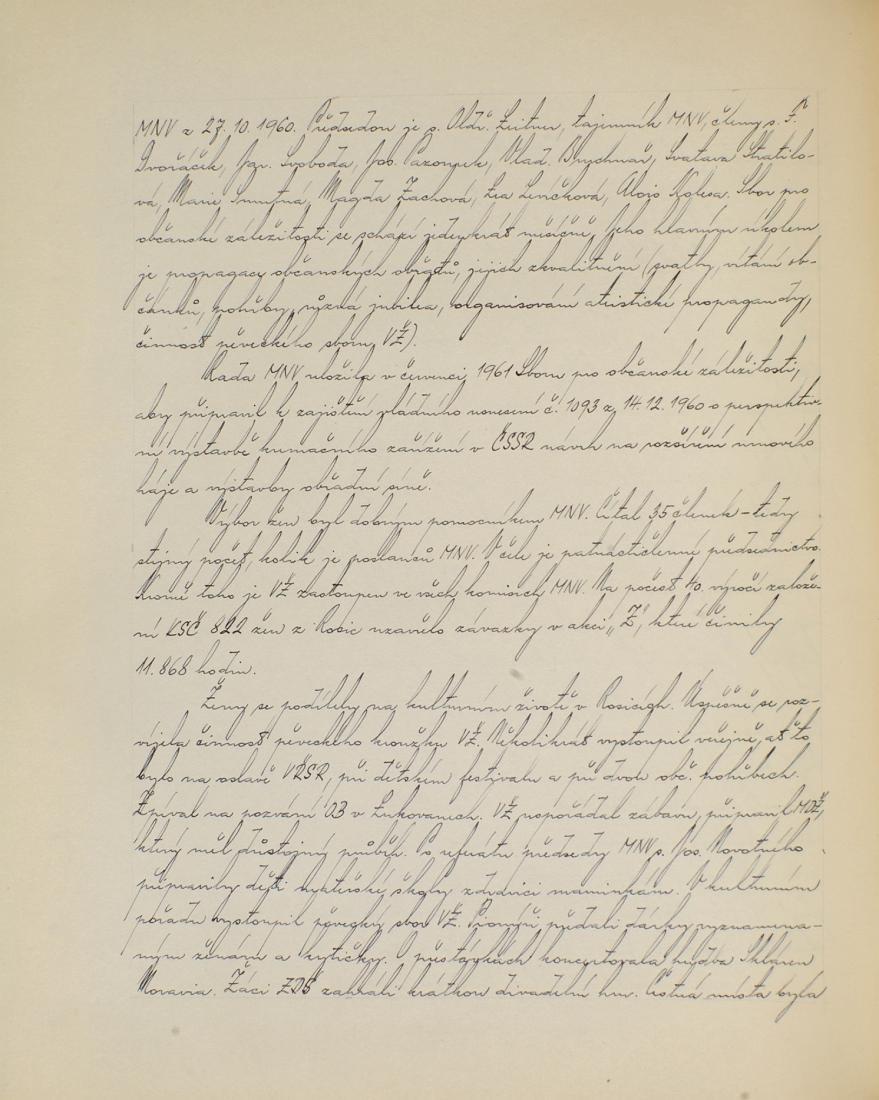 MNV z 27. 10. 1960. Předsedou je s. Oldř. Leitner, tajemník MNV, členy s. F.
Dvořáček, Jar. Svoboda, Jos. Pazourek, Vlad. Brychnař, Svatava Stratilo-
vá, Marie Smutná, Magda Zachová, Lea Lenčková, Alois Kolesa. Sbor pro
občanské záležitosti se schází jedenkrát měsíčně. Jeho hlavním úkolem
je propagace občanských obřadů, jejich zkvalitnění (svatby, vítání ob-
čánků, pohřby, různá jubilea, organisování ateistické propagandy,
činnost pěveckého sboru VŽ).
Rada MNV uložila v červenci 1961 Sboru pro občanské záležitosti,
aby připravil k zajištění vládního usnesení č. 1093 z 14. 12. 1960 o perspektiv-
ní výstavbě kremačního zařízení v ČSSR návrh na rozšíření urnového
háje a výstavby obřadní síně.
Výbor žen byl dobrým pomocníkem MNV. Čítal 35 členek – tedy
stejný počet, kolik je poslanců MNV. V čele je patnáctičlenné předsednictvo.
Kromě toho je VŽ zastoupen ve všech komisích MNV. Na počest 40. výročí založe-
ní KSČ 822 žen z Rosic uzavřelo závazky v akci „Z“, které činily
11.868 hodin.
Ženy se podílely na kulturním životě v Rosicích. Úspěšně se roz-
víjela činnost pěveckého kroužku VŽ. Několikrát vystoupil veřejně, ať to
bylo na oslavě VŘSR, při dětském festivalu a při dvou obč. pohřbech.
Zpíval na pozvání OB v Zukovanech. VŽ uspořádal zábavu, připravil MDŽ,
který měl důstojný průběh. Po referátu předsedy MNV s. Jos. Novotného
připravily děti mateřské školy zdravici maminkám. V kulturním
pořadu vystoupil pěvecký sbor VŽ. Pionýři předali dárky vyznamena-
ným ženám a kytičky. O přestávkách koncertovala hudba Skláren
Moravia. Žáci ZDŠ zahráli krátkou divadelní hru. Čestná místa byla